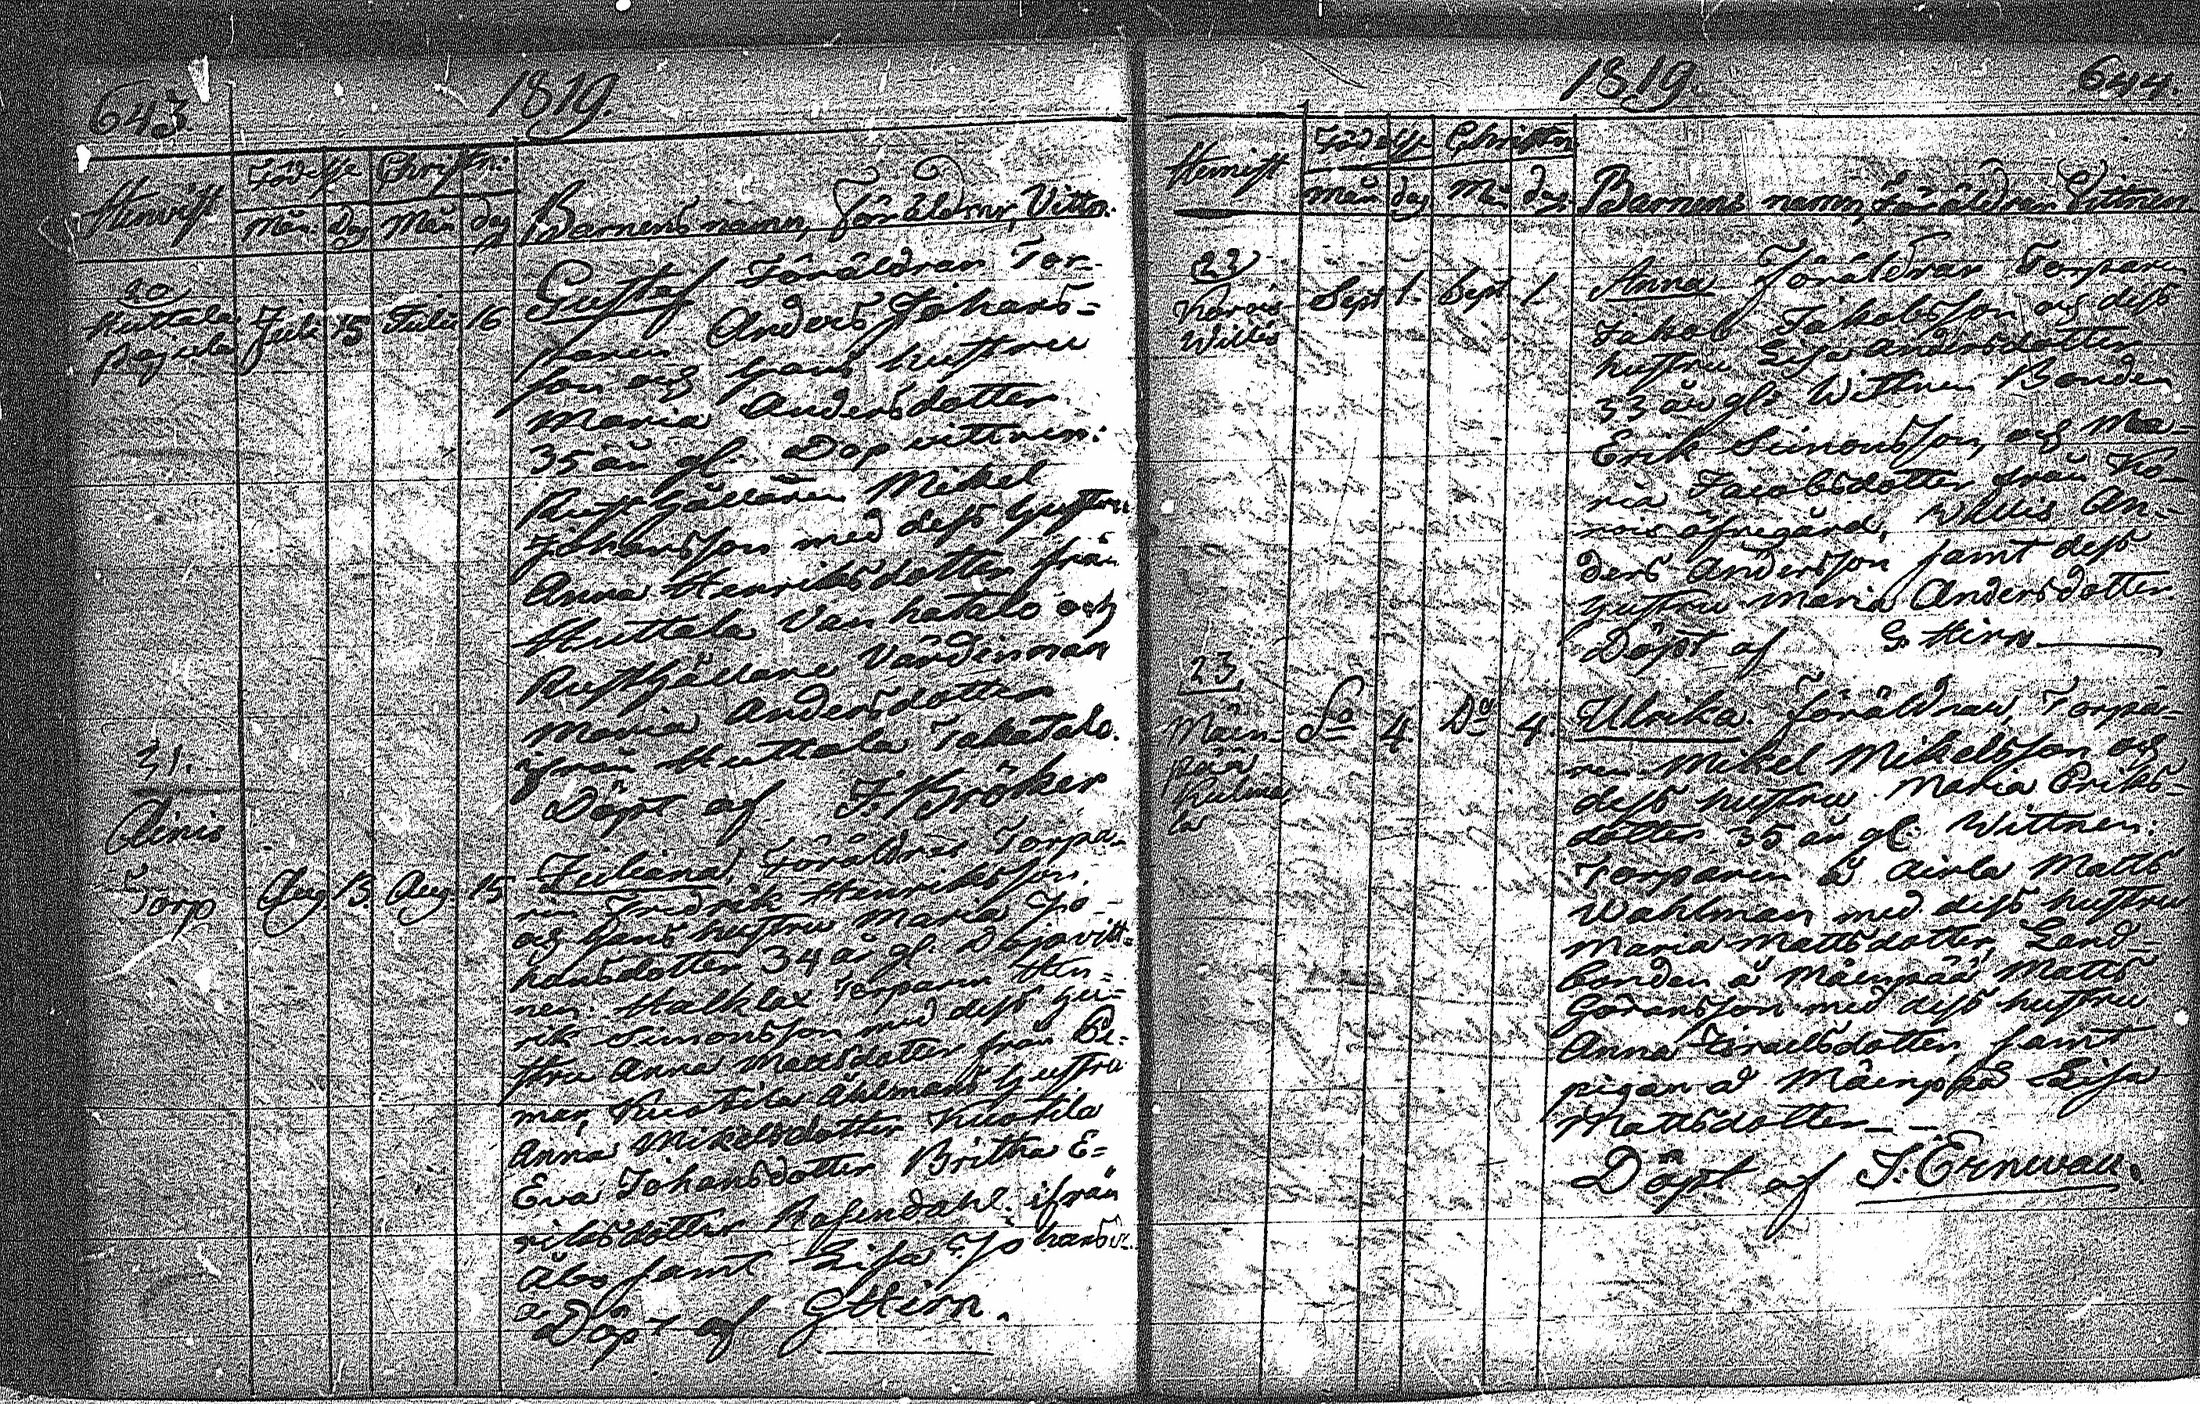 643.
1819.
Hemvist
Födelse
Christn:
Mån.
Dag
Mån
dag
Barnens namn, Föräldrar, Vittn.
20
Huttala
Juli 15 Juli 16
Gustaf Föräldrar Tor-
paren Anders Johans-
son och hans hustru
Maria Andersdotter
35 år gl. Dopvittnen:
Rusthållaren Mikel
Johansson med dess hustru
Anna Henriksdotter från
Huttala Vanhatalo och
Rusthållare Värdinnan
Maria Andersdotter
ifrån Huttala Takatalo.
Döpt af F. Bröker
21.
Torp
Aug 13. Aug. 15
Juliana, Föräldrar Torpa-
ren Fredrik Henriksson
och hans hustru Maria Jo-
hansdotter 34 år gl. Dopvitt-
nen: Halklax Torparn Hen-
rik Simonsson med dess hu-
stru Anna Mattsdotter från
Åhlmans hustru
Anna Mikelsdotter
Eva Johansdotter Britha E-
riksdotter Rosendahl ifrån
Åbo samt Lisa Johansd:
Döpt af G Hirn.
1819.
644.
Hemvist
Födelse
Christn
Mån
dag
Mån
dag.
Barnens namn, Föräldrar Vittnen
22
Karois
Willis
Sept 1. Sept 1.
Anna Föräldrar Torparen
Jakob Jakobsson och dess
hustru Lisa Andersdotter
33 år gl. Wittnen Bonden
Erik Simonsson, och Ma-
ria Jacobsdotter från Ka-
rois öfvegård, Willis An-
ders Andersson samt dess
hustru Maria Andersdotter
Döpt af G. Hirn
23
Mäen-
pää
Do 4 Do 4.
Ulrika. Föräldrar, Torpa-
ren Mikel Mikelsson och
dess hustru Maria Eriks-
dotter 35 år gl. Wittnen:
Torparen å Airla Matts
Wahlman, med dess hustru
Maria Mattsdotter, Land-
bonden å Mäenpää Matts
Göransson med dess hustru
Anna Israelsdotter, samt
pigan å Mäenpää Lisa
Mattsdotter
Döpt af J. Ernwall.